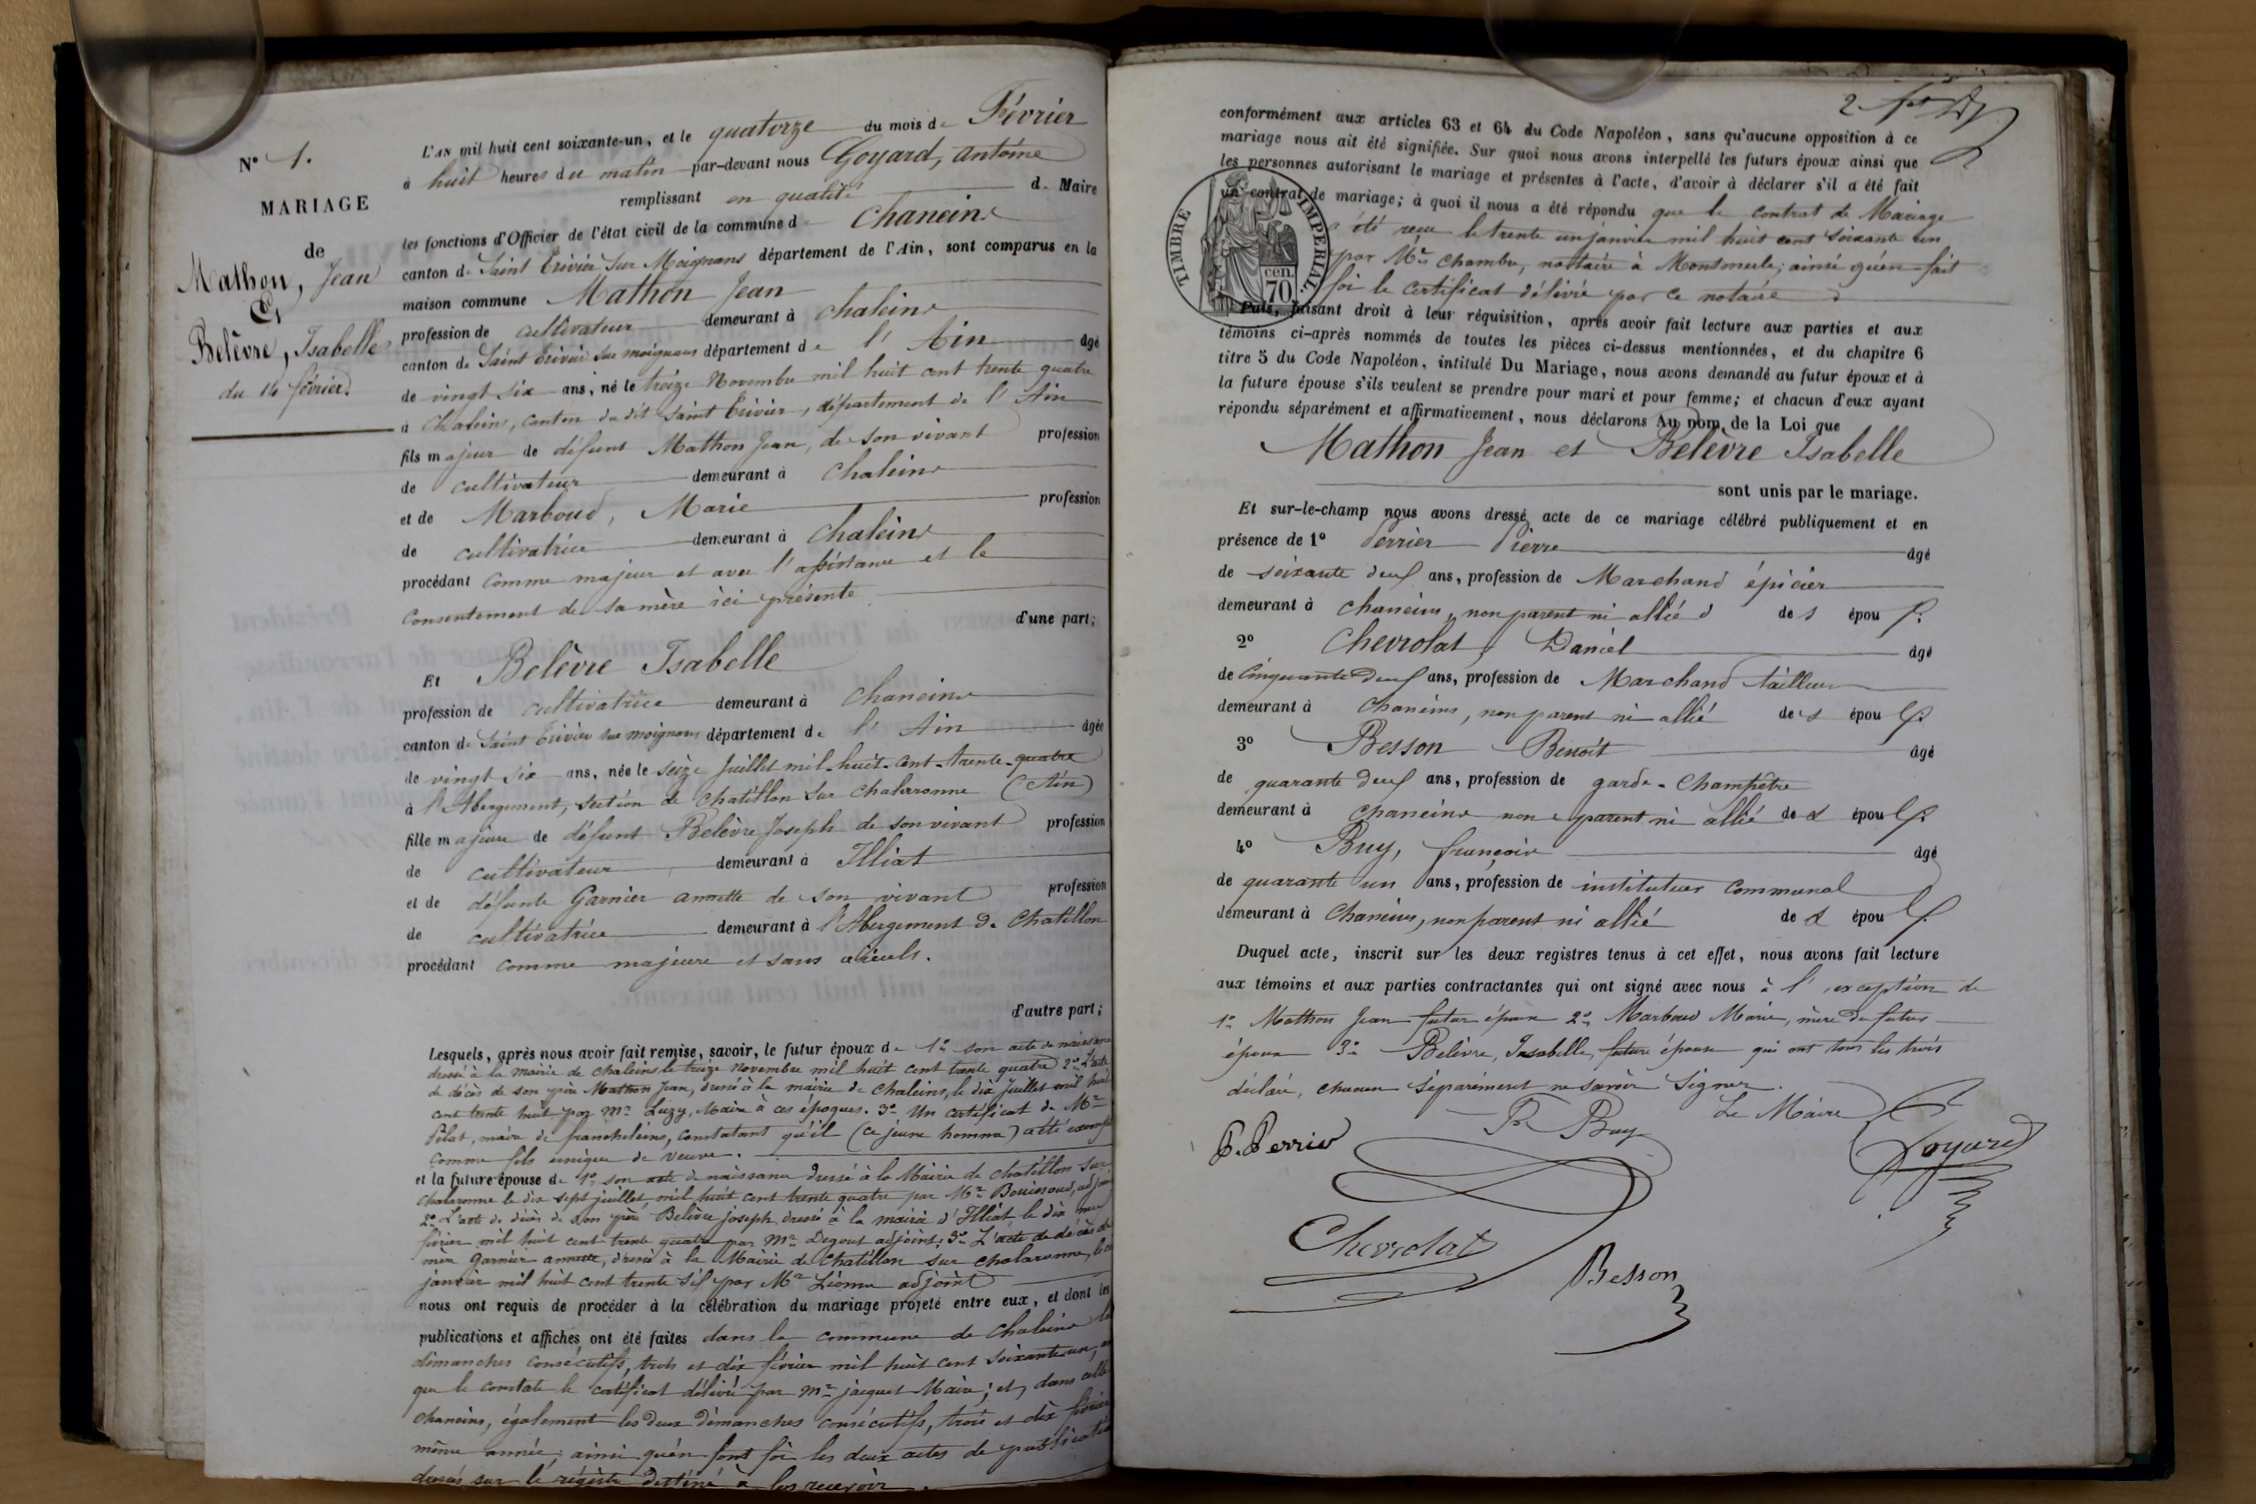 N° 1.
MARIAGE
de
Mathon, Jean
Et
Belèvre, Isabelle
du 14 février.
L'AN mil huit cent soixante-un, et le quatorze du mois de Février
à huit heures du matin par-devant nous Goyard, Antoine
remplissant en qualité de Maire
les fonctions d'Officier de l'état civil de la commune de Chaneins
canton de Saint Trivier Sur Moignans département de l'Ain, sont comparus en la
maison commune Mathon Jean
profession de cultivateur demeurant à chaleins
canton de Saint Trivier sur moignans département de l'Ain âgé
de vingt six ans, né le treize Novembre mil huit cent trente quatre
à Chaleins, canton du dit Saint Trivier, département de l'Ain
fils majeur de défunt Mathon Jean, de son vivant profession
de cultivateur demeurant à chaleins
et de Marboud, Marie profession
de cultivatrice demeurant à chaleins
procédant comme majeur et avec l'assistance et le
consentement de sa mère ici présente
d'une part;
Et Belèvre Isabelle
profession de cultivatrice demeurant à chaneins
canton de Saint Trivier sur moignans département de l'Ain âgée
de vingt six ans, née le seize Juillet mil-huit-cent-trente-quatre
à l'Abergement, section de Chatillon sur Chalaronne (Ain)
fille majeure de défunt Belèvre Joseph de son vivant profession
de cultivateur demeurant à Illiat
et de défunte Garnier annette de son vivant profession
de cultivatrice demeurant à l'Abergement de Chatillon
procédant comme majeure et sans aïeuls.
d'autre part;
Lesquels, après nous avoir fait remise, savoir, le futur époux de 1° son acte de naissance
dressé à la mairie de chaleins le treize novembre mil huit cent trente quatre 2° L'acte
de décès de son père Mathon Jean, dressé à la mairie de Chaleins, le dix juillet mil huit
cent trente huit par Mr Luzy, Maire à ces époques. 3° Un certificat de Mr
Pilat, maire de francheleins, constatant qu'il (ce jeune homme) a été exempté
comme fils unique de veuve.
et la future épouse de 1° son acte de naissance dressé à la Mairie de Chatillon sur
chalaronne le dix sept juillet mil huit cent trente quatre par Mr adjoint
2° L'acte de décès de son père Belèvre joseph dressé à la mairie d'Illiat le dix neuf
février mil huit cent trente quatre par Mr Degout adjoint; 3° L'acte de décès de
mère Garnier annette, dressé à la Mairie de Chatillon sur chalaronne,
janvier mil huit cent trente six par Mr adjoint
nous ont requis de procéder à la célébration du mariage projeté entre eux, et dont les
publications et affiches ont été faites dans la commune de chaleins les
dimanches consécutifs, trois et dix février mil huit cent soixante un,
que le constate le certificat délivré par Mr jacquet Maire; et, dans celle
chaneins, également les deux dimanches consécutifs, trois et dix février
même année; ainsi qu'en font foi les deux actes de publication
dressés sur le registre destiné à les recevoir.
2
conformément aux articles 63 et 64 du Code Napoléon, sans qu'aucune opposition à ce
mariage nous ait été signifiée. Sur quoi nous avons interpellé les futurs époux ainsi que
les personnes autorisant le mariage et présentes à l'acte, d'avoir à déclarer s'il a été fait
un contrat de mariage; à quoi il nous a été répondu que le contrat de Mariage
a été reçu le trente un janvier mil huit cent soixante un
par Me Chambre, notaire à Montmerle; ainsi qu'en fait
foi le certificat délivré par ce notaire
TIMBRE IMPERIAL.
70 cen.
Puis, faisant droit à leur réquisition, après avoir fait lecture aux parties et aux
témoins ci-après nommés de toutes les pièces ci-dessus mentionnées, et du chapitre 6
titre 5 du Code Napoléon, intitulé Du Mariage, nous avons demandé au futur époux et à
la future épouse s'ils veulent se prendre pour mari et pour femme; et chacun d'eux ayant
répondu séparément et affirmativement, nous déclarons Au nom de la Loi que
Mathon Jean et Belèvre Isabelle
sont unis par le mariage.
Et sur-le-champ nous avons dressé acte de ce mariage célébré publiquement et en
présence de 1° Perrier Pierre âgé
de soixante deux ans, profession de Marchand épicier
demeurant à chaneins, non parent ni allié des époux.
2° Chevrolat, Daniel âgé
de Cinquante deux ans, profession de Marchand tailleur
demeurant à Chaneins, non parent ni allié des époux.
3° Besson Benoit âgé
de quarante deux ans, profession de garde-Champêtre
demeurant à chaneins non parent ni allié des époux.
4° Buy, françois âgé
de quarante un ans, profession de instituteur communal
demeurant à Chaneins, non parent ni allié des époux.
Duquel acte, inscrit sur les deux registres tenus à cet effet, nous avons fait lecture
aux témoins et aux parties contractantes qui ont signé avec nous à l'exception de
1° Mathon Jean futur époux 2° Marboud Marie, mère du futur
époux 3° Belèvre, Isabelle, future épouse qui ont tous les trois
déclaré, chacun séparément ne savoir signer.
P. Perrier
Fr Buy
Le Maire
Goyard
Chevrolat
Besson